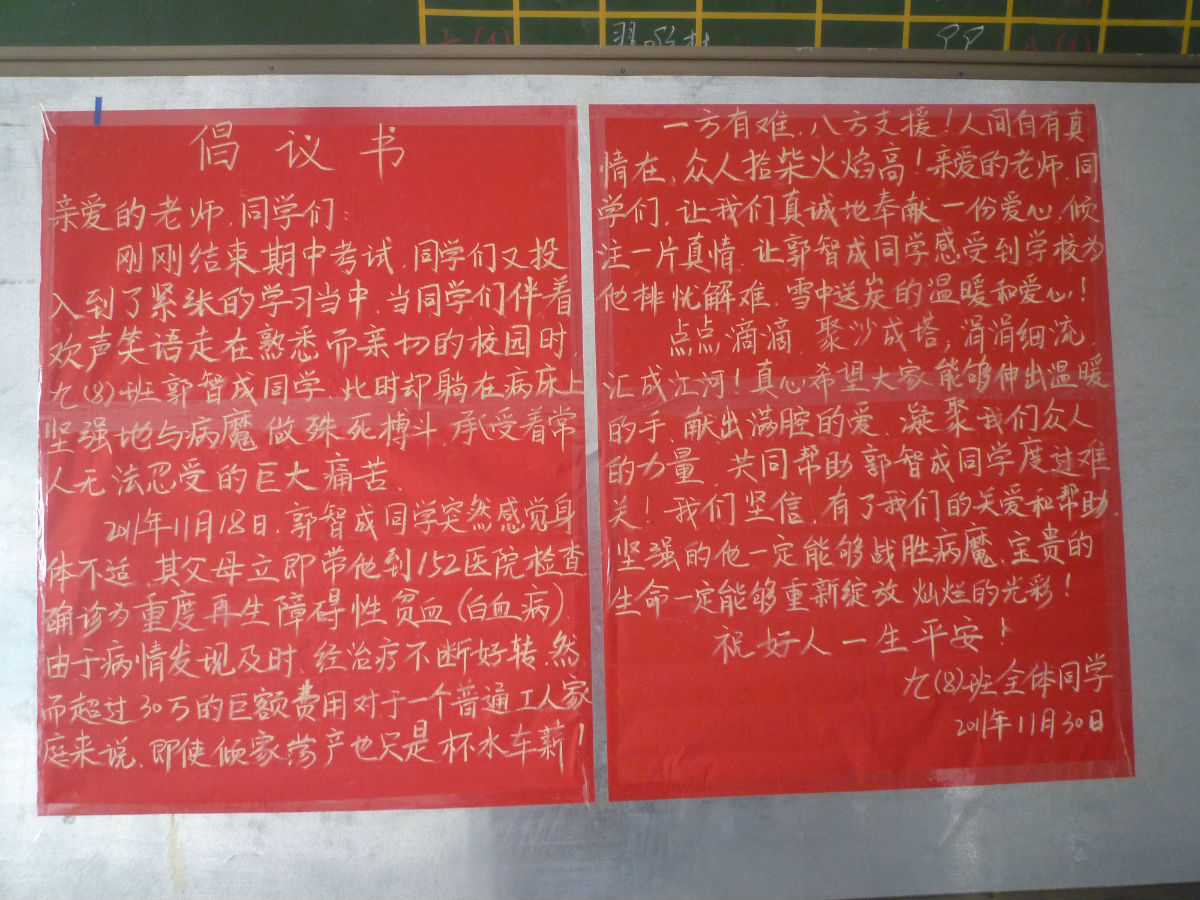 倡议书
亲爱的老师、同学们:
刚刚结束期中考试,同学们又投
入到了紧张的学习当中,当同学们伴着
欢声笑语走在熟悉而亲切的校园时,
九(8)班郭智成同学,此时却躺在病床上
坚强地与病魔做殊死搏斗,承受着常
人无法忍受的巨大痛苦。
2011年11月18日,郭智成同学突然感觉身
体不适,其父母立即带他到152医院检查
确诊为重度再生障碍性贫血(白血病)。
由于病情发现及时,经治疗不断好转,然
而超过30万的巨额费用对于一个普通工人家
庭来说,即使倾家荡产也只是杯水车薪!
一方有难,八方支援!人间自有真
情在,众人拾柴火焰高!亲爱的老师、同
学们,让我们真诚地奉献一份爱心,倾
注一片真情,让郭智成同学感受到学校为
他排忧解难,雪中送炭的温暖和爱心!
点点滴滴,聚沙成塔;涓涓细流,
汇成江河!真心希望大家能够伸出温暖
的手,献出满腔的爱,凝聚我们众人
的力量,共同帮助郭智成同学度过难
关!我们坚信,有了我们的关爱和帮助,
坚强的他一定能够战胜病魔,宝贵的
生命一定能够重新绽放灿烂的光彩!
祝好人一生平安!
九(8)班全体同学
2011年11月30日